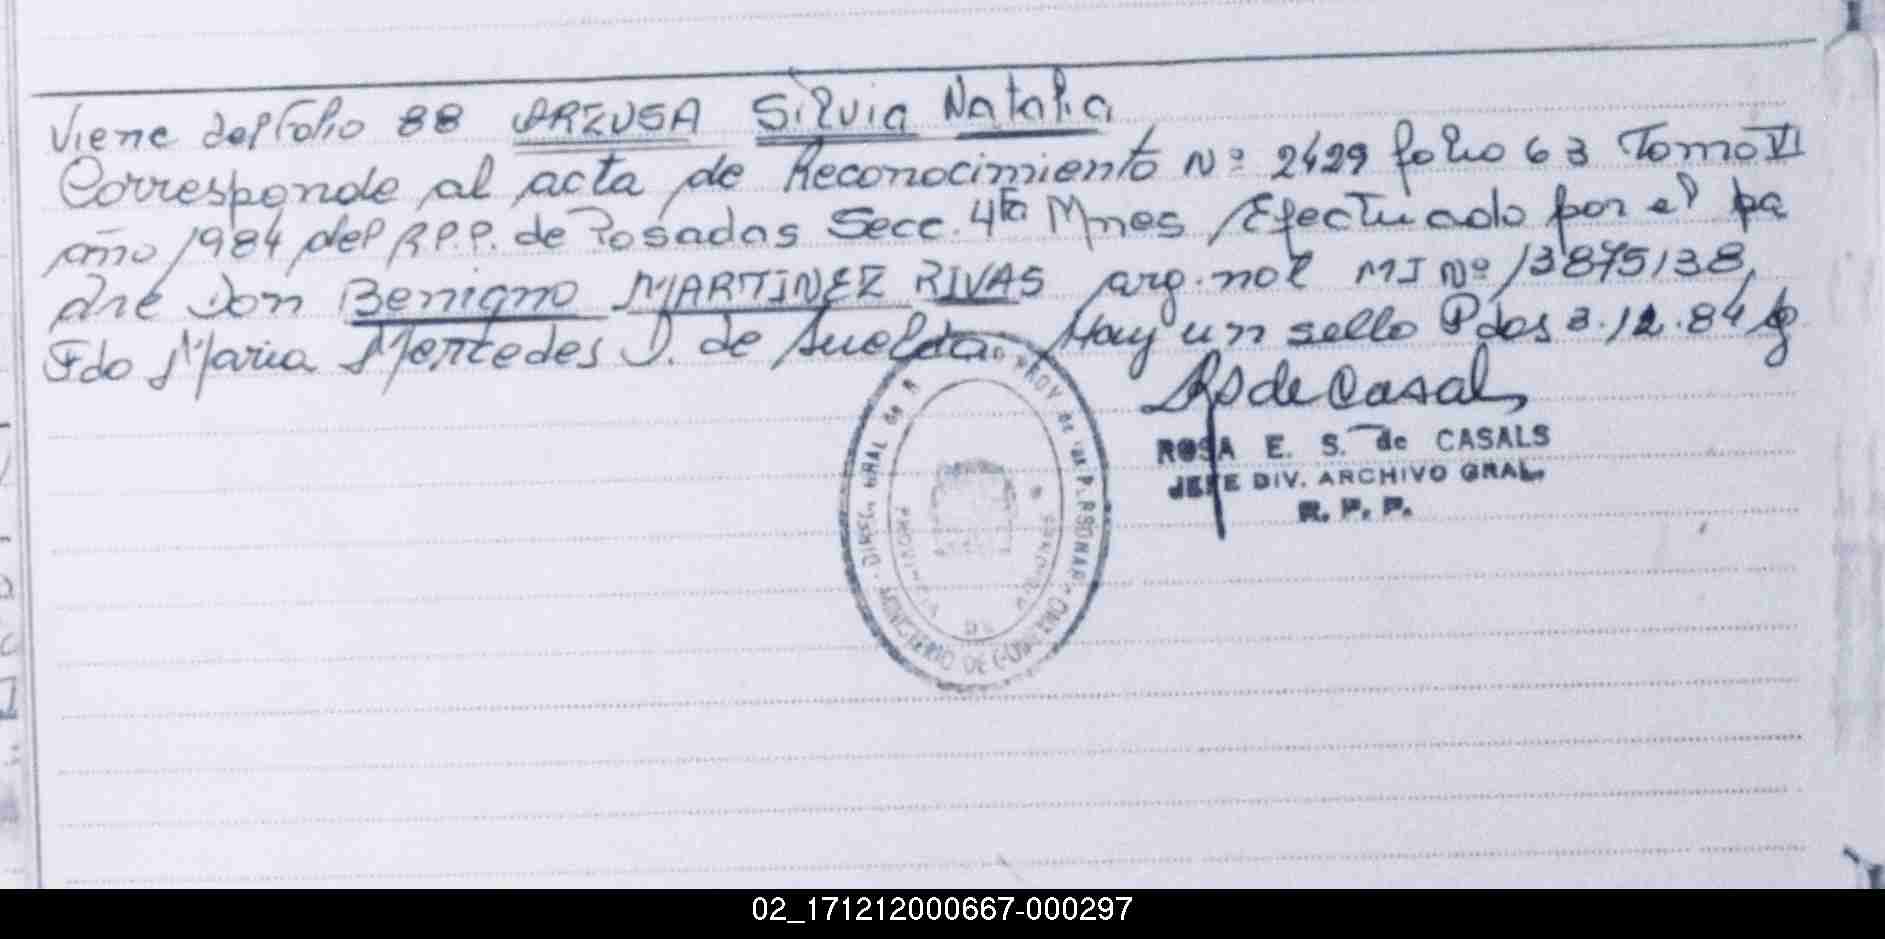 Viene del folio 88 ARZUSA Silvia Natalia
Corresponde al acta de Reconocimiento Nº 2429 folio 63 Tomo VI
año 1984 del R.P.P. de Posadas Secc. 4ta Mnes, Efectuado por el pa
dre Don Benigno MARTINEZ RIVAS arg. nat MI Nº 13875138,
Fdo Maria Mercedes D. de Suelda. Hay un sello Pdas 3.12.84
RS de Casals
ROSA E. S. de CASALS
JEFE DIV. ARCHIVO GRAL.
R. P. P.
DIREC. GRAL de PROV de P.RSONAS
MINISTERIO DE GOBIERNO
PROVINCIA DE MISIONES
02_171212000667-000297